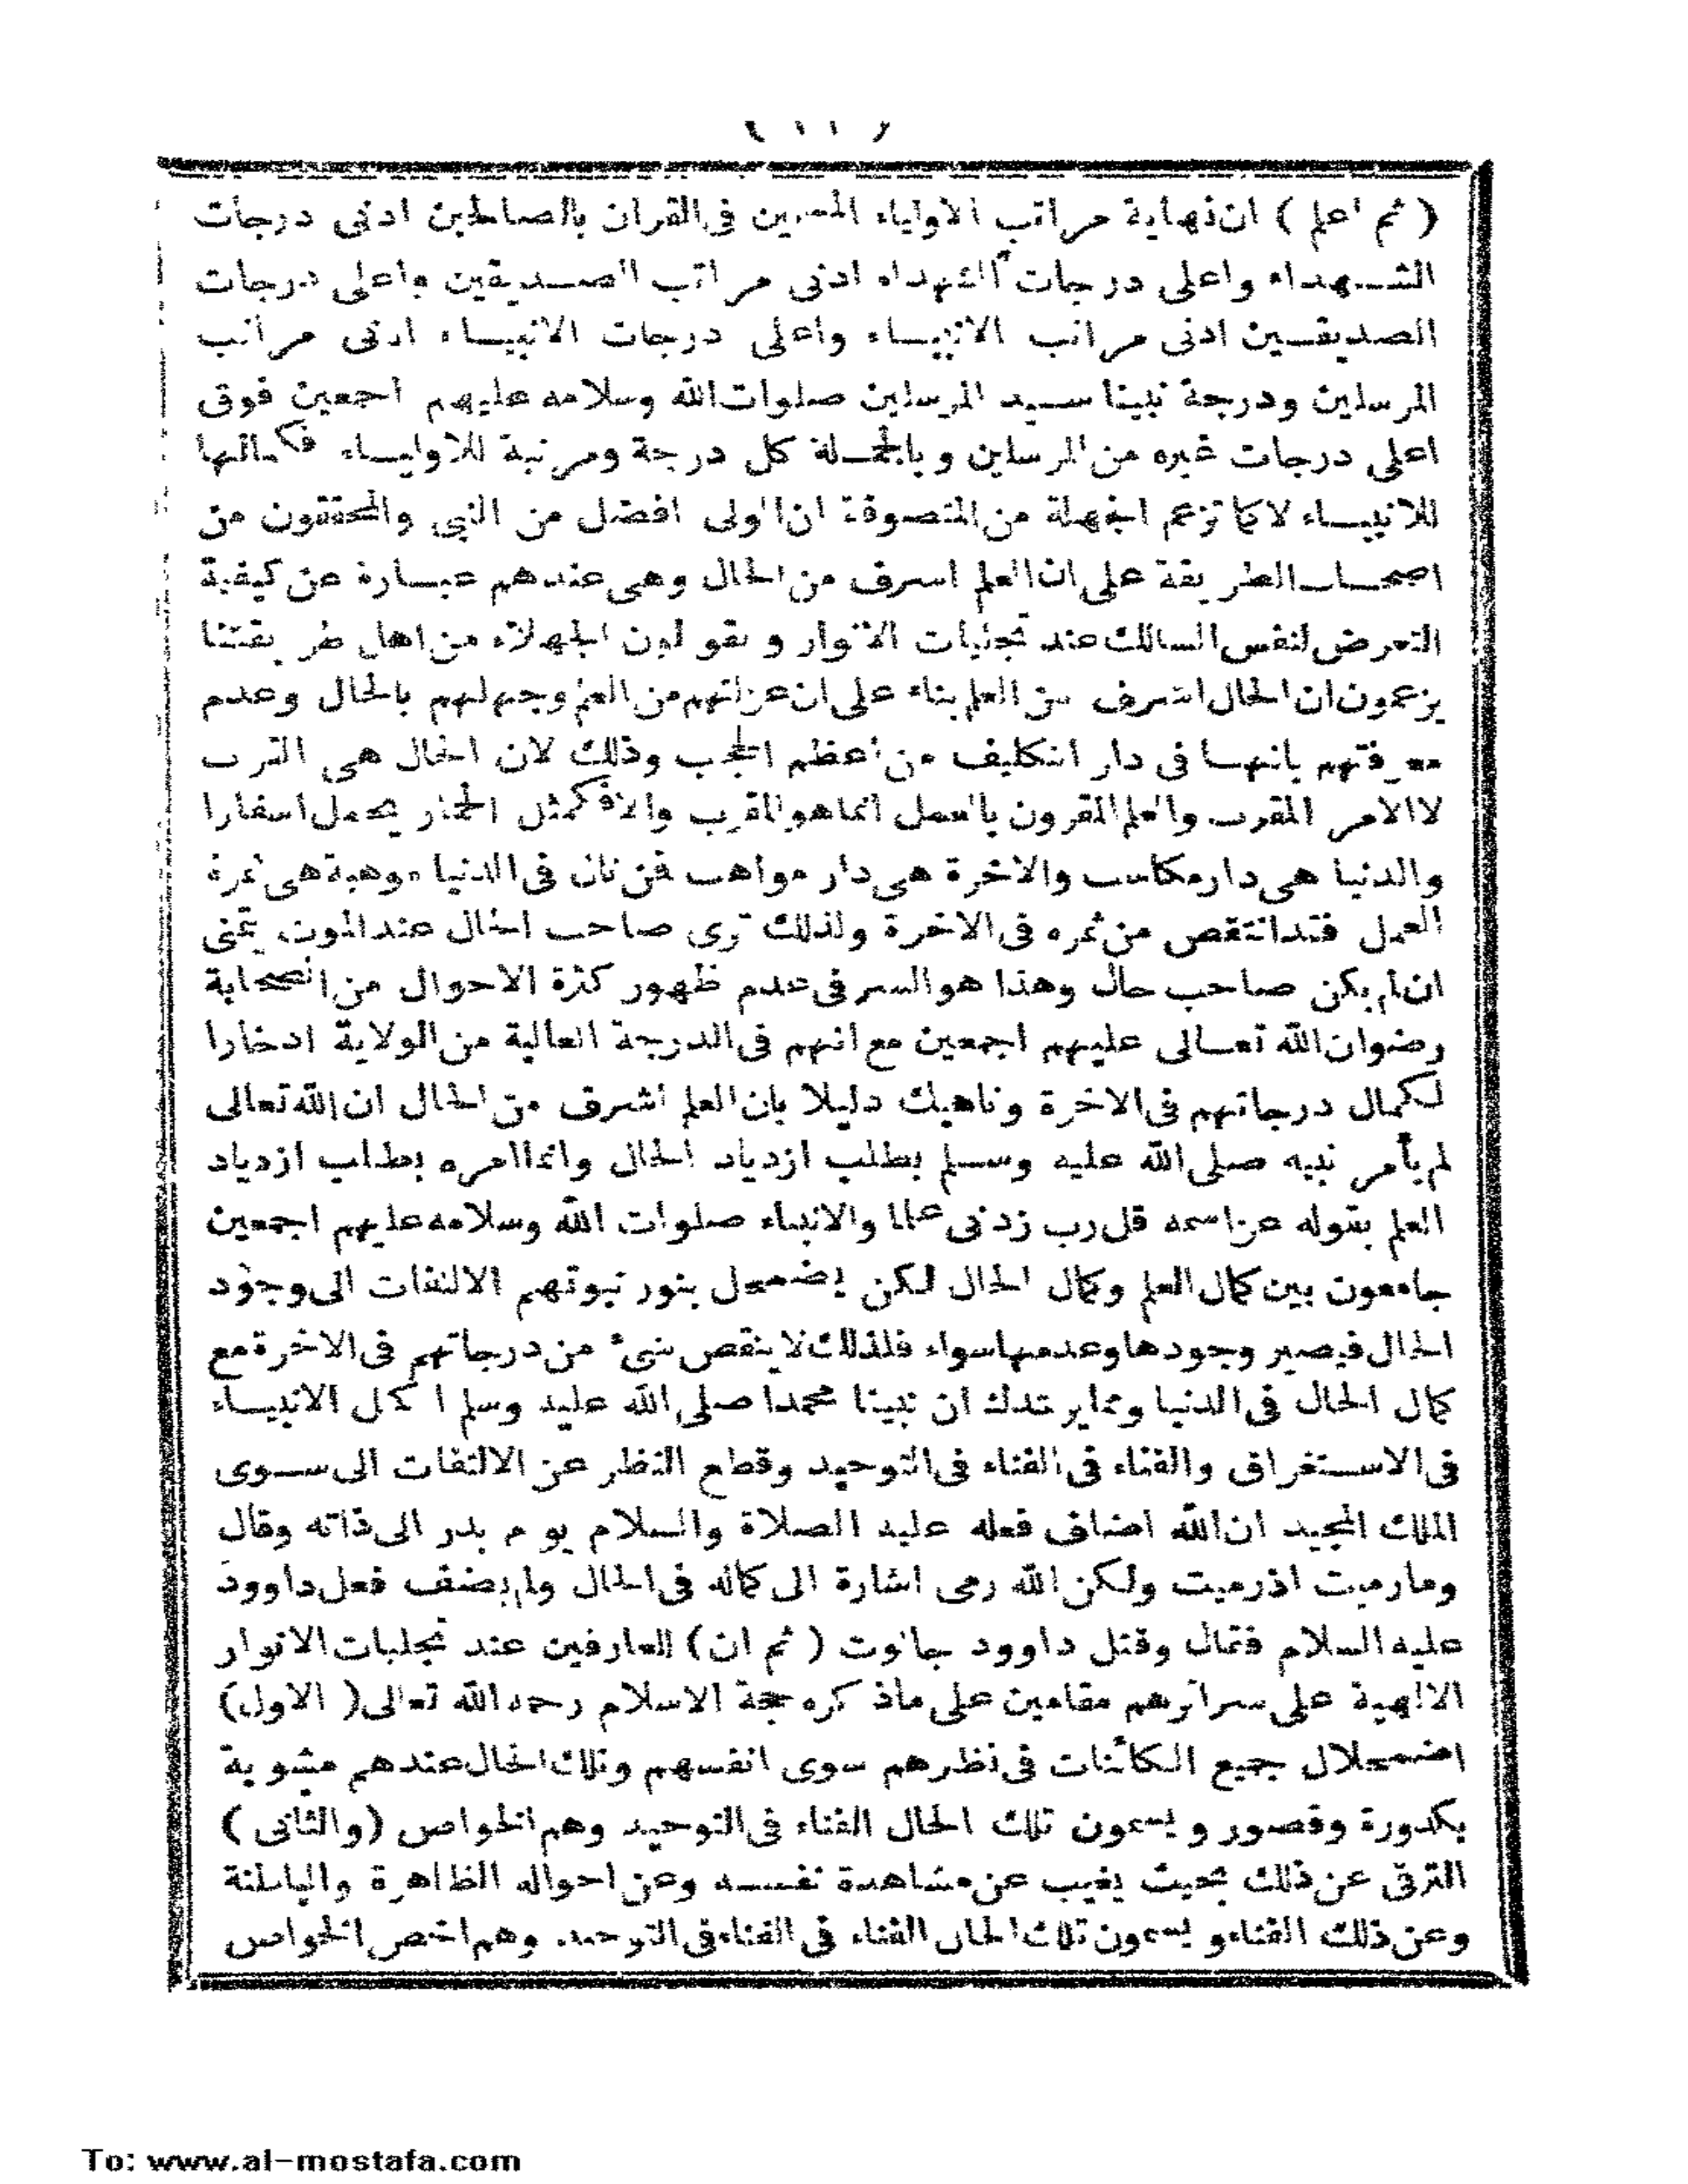 ﴿ ١١ ﴾
( ثم اعلم ) ان نهاية مراتب الاولياء المعبرين فى القرآن بالصالحين ادنى درجات
الشهداء واعلى درجات الشهداء ادنى مراتب الصديقين واعلى درجات
الصديقين ادنى مراتب الانبياء واعلى درجات الانبياء ادنى مراتب
المرسلين ودرجة نبينا سيد المرسلين صلوات الله وسلامه عليهم اجمعين فوق
اعلى درجات غيره من المرسلين وبالجملة كل درجة ومرتبة للاولياء فكمالها
للانبياء لا كما تزعم الجهلة من المتصوفة ان الولى افضل من النبى والمحققون من
اصحاب الطريقة على ان العلم اشرف من الحال وهى عندهم عبارة عن كيفية
التعرض لنفس السالك عند تجليات الانوار ويقولون الجهلاء من اهل طريقتنا
يزعمون ان الحال اشرف من العلم بناء على ان عزلتهم من العلم وجهلهم بالحال وعدم
معرفتهم بانها فى دار التكليف من اعظم الحجب وذلك لان الحال هى القرب
لا الامر المقرب والعلم المقرون بالعمل انما هو المقرب والا فكمثل الحمار يحمل اسفارا
والدنيا هى دار مكاسب والاخرة هى دار مواهب فمن نال فى الدنيا موهبة هى ثمرة
العمل فقد انتقص من ثمره فى الاخرة ولذلك ترى صاحب الحال عند الموت يتمنى
ان لم يكن صاحب حال وهذا هو السر فى عدم ظهور كثرة الاحوال من الصحابة
رضوان الله تعالى عليهم اجمعين مع انهم فى الدرجة العالية من الولاية ادخارا
لكمال درجاتهم فى الاخرة وناهيك دليلا بان العلم اشرف من الحال ان الله تعالى
لم يأمر نبيه صلى الله عليه وسلم بطلب ازدياد الحال وانما امره بطلب ازدياد
العلم بقوله عز اسمه قل رب زدنى علما والانبياء صلوات الله وسلامه عليهم اجمعين
جامعون بين كمال العلم وكمال الحال لكن يضمحل بنور نبوتهم الالتفات الى وجود
الحال فيصير وجودها وعدمها سواء فلذلك لا ينقص شئ من درجاتهم فى الاخرة مع
كمال الحال فى الدنيا ومما يرشدك ان نبينا محمدا صلى الله عليه وسلم اكمل الانبياء
فى الاستغراق والفناء فى الفناء فى التوحيد وقطع النظر عن الالتفات الى سوى
الملك المجيد ان الله اضاف فعله عليه الصلاة والسلام يوم بدر الى ذاته وقال
وما رميت اذ رميت ولكن الله رمى اشارة الى كماله فى الحال ولم يضف فعل داوود
عليه السلام فقال وقتل داوود جالوت ( ثم ان ) للعارفين عند تجليات الانوار
الالهية على سرائرهم مقامين على ماذكره حجة الاسلام رحمه الله تعالى ( الاول )
اضمحلال جميع الكائنات فى نظرهم سوى انفسهم وتلك الحال عندهم مشوبة
بكدورة وقصور ويسمون تلك الحال الفناء فى التوحيد وهم الخواص ( والثانى )
الترقى عن ذلك بحيث يغيب عن مشاهدة نفسه وعن احواله الظاهرة والباطنة
وعن ذلك الفناء ويسمون تلك الحال الفناء فى الفناء فى التوحيد وهم اخص الخواص
To: www.al-mostafa.com